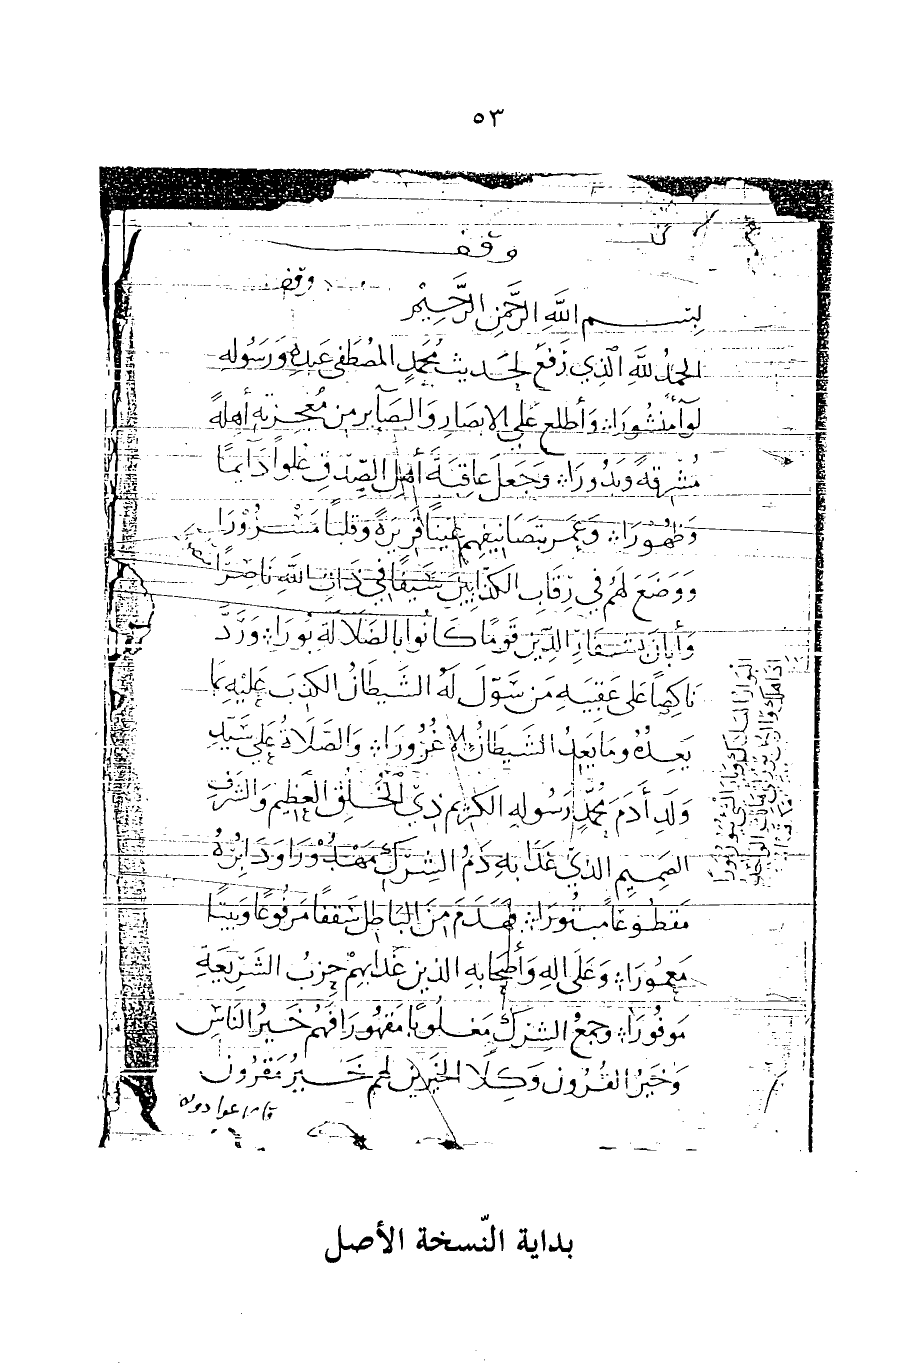 ٥٣
وقف
وقف
بسم الله الرَّحمن الرَّحيم
الحمدُ للهِ الَّذي رَفعَ لحديث مُحمَّدٍ المُصْطَفى عَبدِه ورَسُوله
لوآءً منشُورَا وأطلع على الابصَارِ والبصَآيرِ من مُعجزتهِ أهلةً
مُشْرقةً وبدُورَا وجَعلَ عَاقبَةَ أهلِ الصِّدقِ عُلواً دَآيماً
وظُهُورَا وعَمَر بتصَانيفهِم عيناً قَريرَةً وقلباً مَشْرُورَا
ووَضَعَ لهُم في رِقَابِ الكذَّابينَ سَيفاً في ذَاتِ اللهِ نَاصِراً
وأبانَ بشفَارِ الدِّينِ قَوماً كانُوا بالضَلالَةِ بُورَا ورَدَّ
نَاكِصاً على عَقبَيهِ مَن سَوَّلَ لهُ الشَّيطَانُ الكذبَ عليْهِ بمَا
يَعِدُهُ وما يَعِدُ الشيطانُ إلا غُرُورَا والصَّلاةُ على سَيِّدِ
ولَدِ أدَمَ مُحمَّدٍ رَسُولهِ الكريمِ ذِي الخُلقِ العَظِيم والشرَفِ
الصَمِيمِ الذي غَدَا بهِ دَمُ الشِركِ مَهْدُوْرَا ودَابِرُهُ
مَقطُوعاً مبثُورَا فهَدَمَ مِنَ البَاطِلِ سَقفاً مَرفُوعاً وبَيتاً
مَعمُورَا وعَلى اله وأصْحَابهِ الذين غَدَا بِهمْ حِزبُ الشَّرِيعَةِ
مَوفُورَا وجمعُ الشركِ مَغلُوباً مَقهُورَا فهُم خَيرُ النَّاسِ
وخَيرُ القُرُونِ وكِلا الخيرَيْنِ لهم خَيرُ مَقرُونٍ
بداية النّسخة الأصل